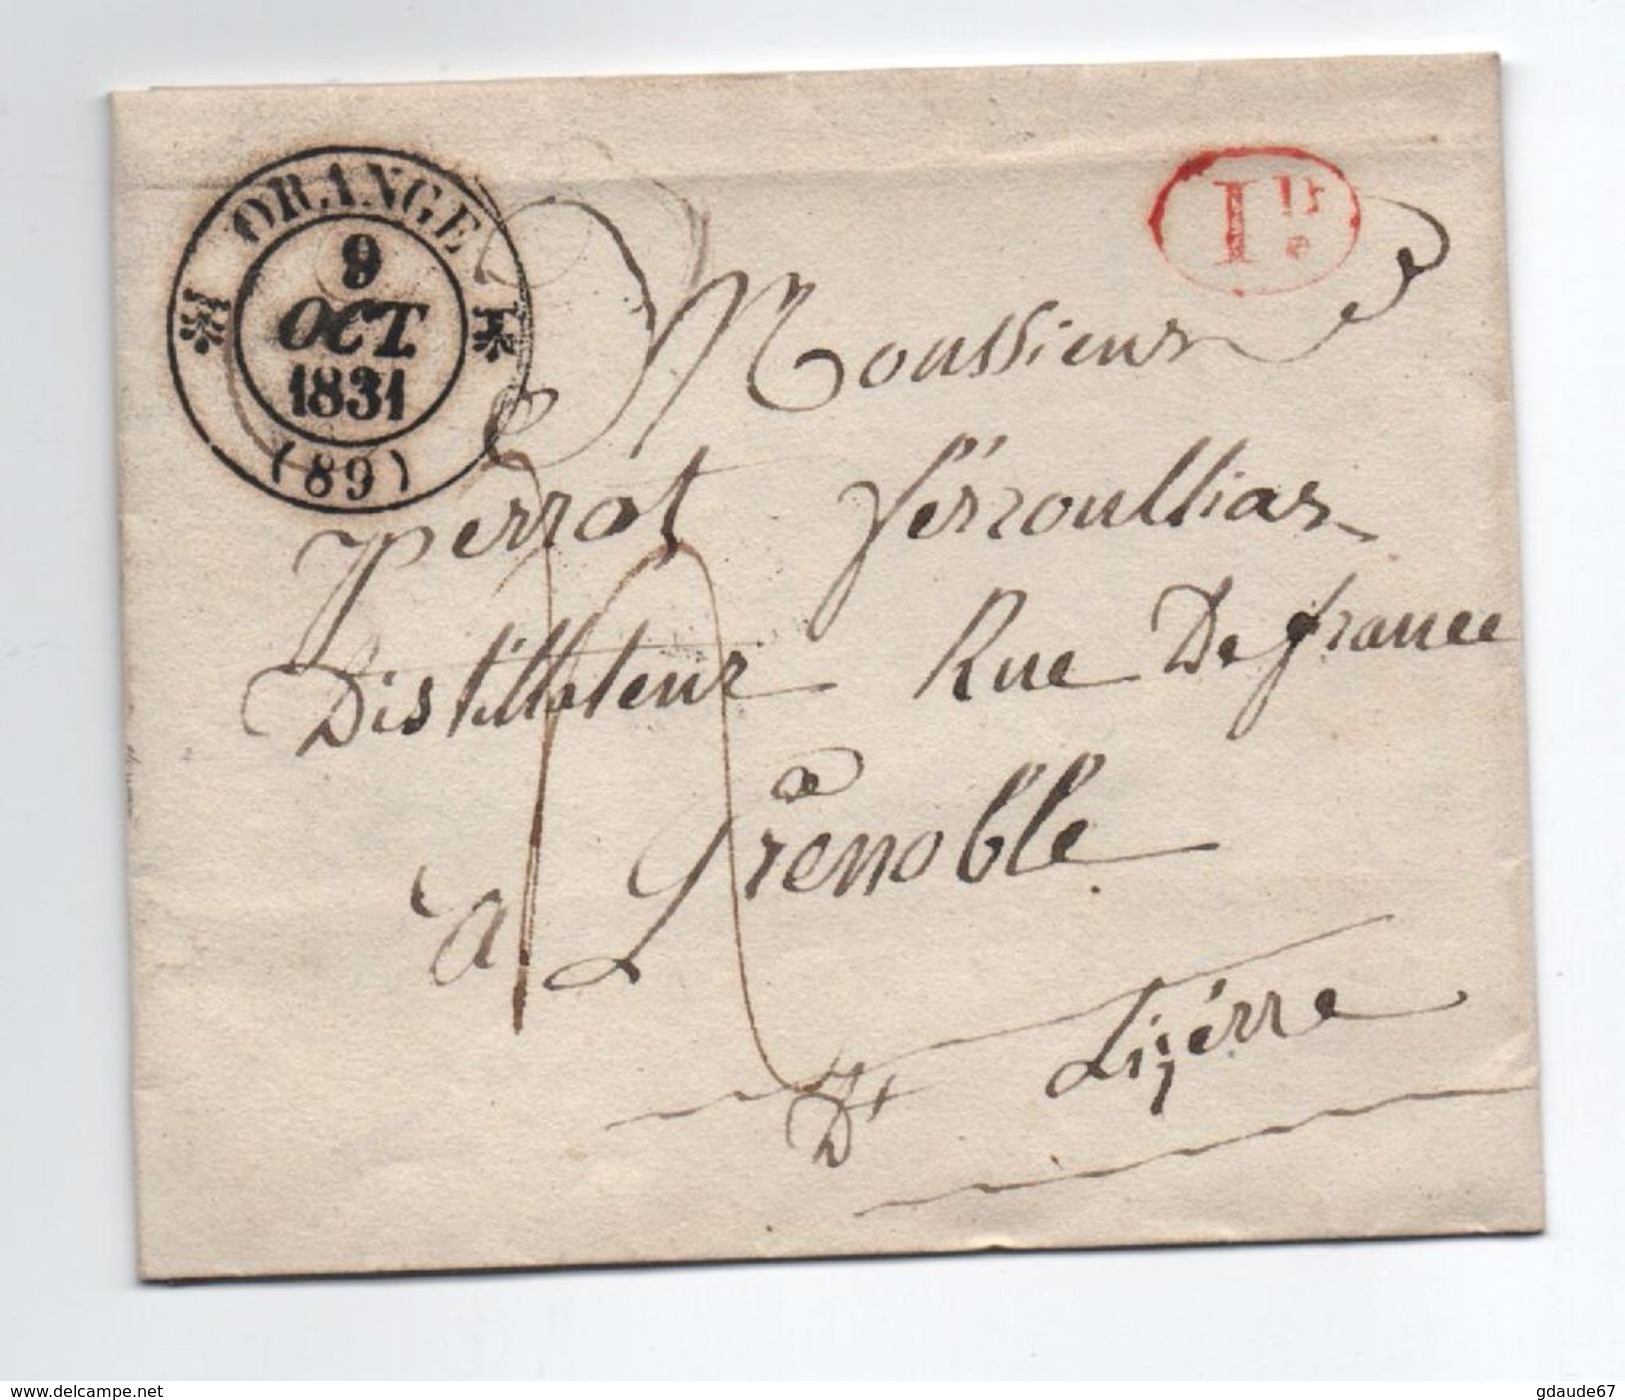 ORANGE
9
OCT.
1831
(89)
1re
Moussieur
Perrot ferroullias
Distillateur Rue De france
a Grenoble
Dt Lizérre
delcampe.net
gdaude67